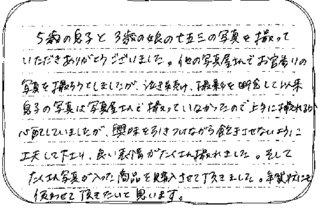 5歳の息子と3歳の娘の七五三の写真を撮って
いただきありがとうございました。他の写真屋さんでお宮参りの
写真を撮ろうとしましたが、泣き続け、撮影を断念して以来
息子の写真は写真屋さんで撮っていなかったので上手に撮れるか
心配していましたが、興味を引きつけながら飽きさせないように
工夫して下さり、良い表情がたくさん撮れました。そして
たくさん写真が入った商品を購入させて頂きました。年賀状にも
使わせて頂きたいと思います。